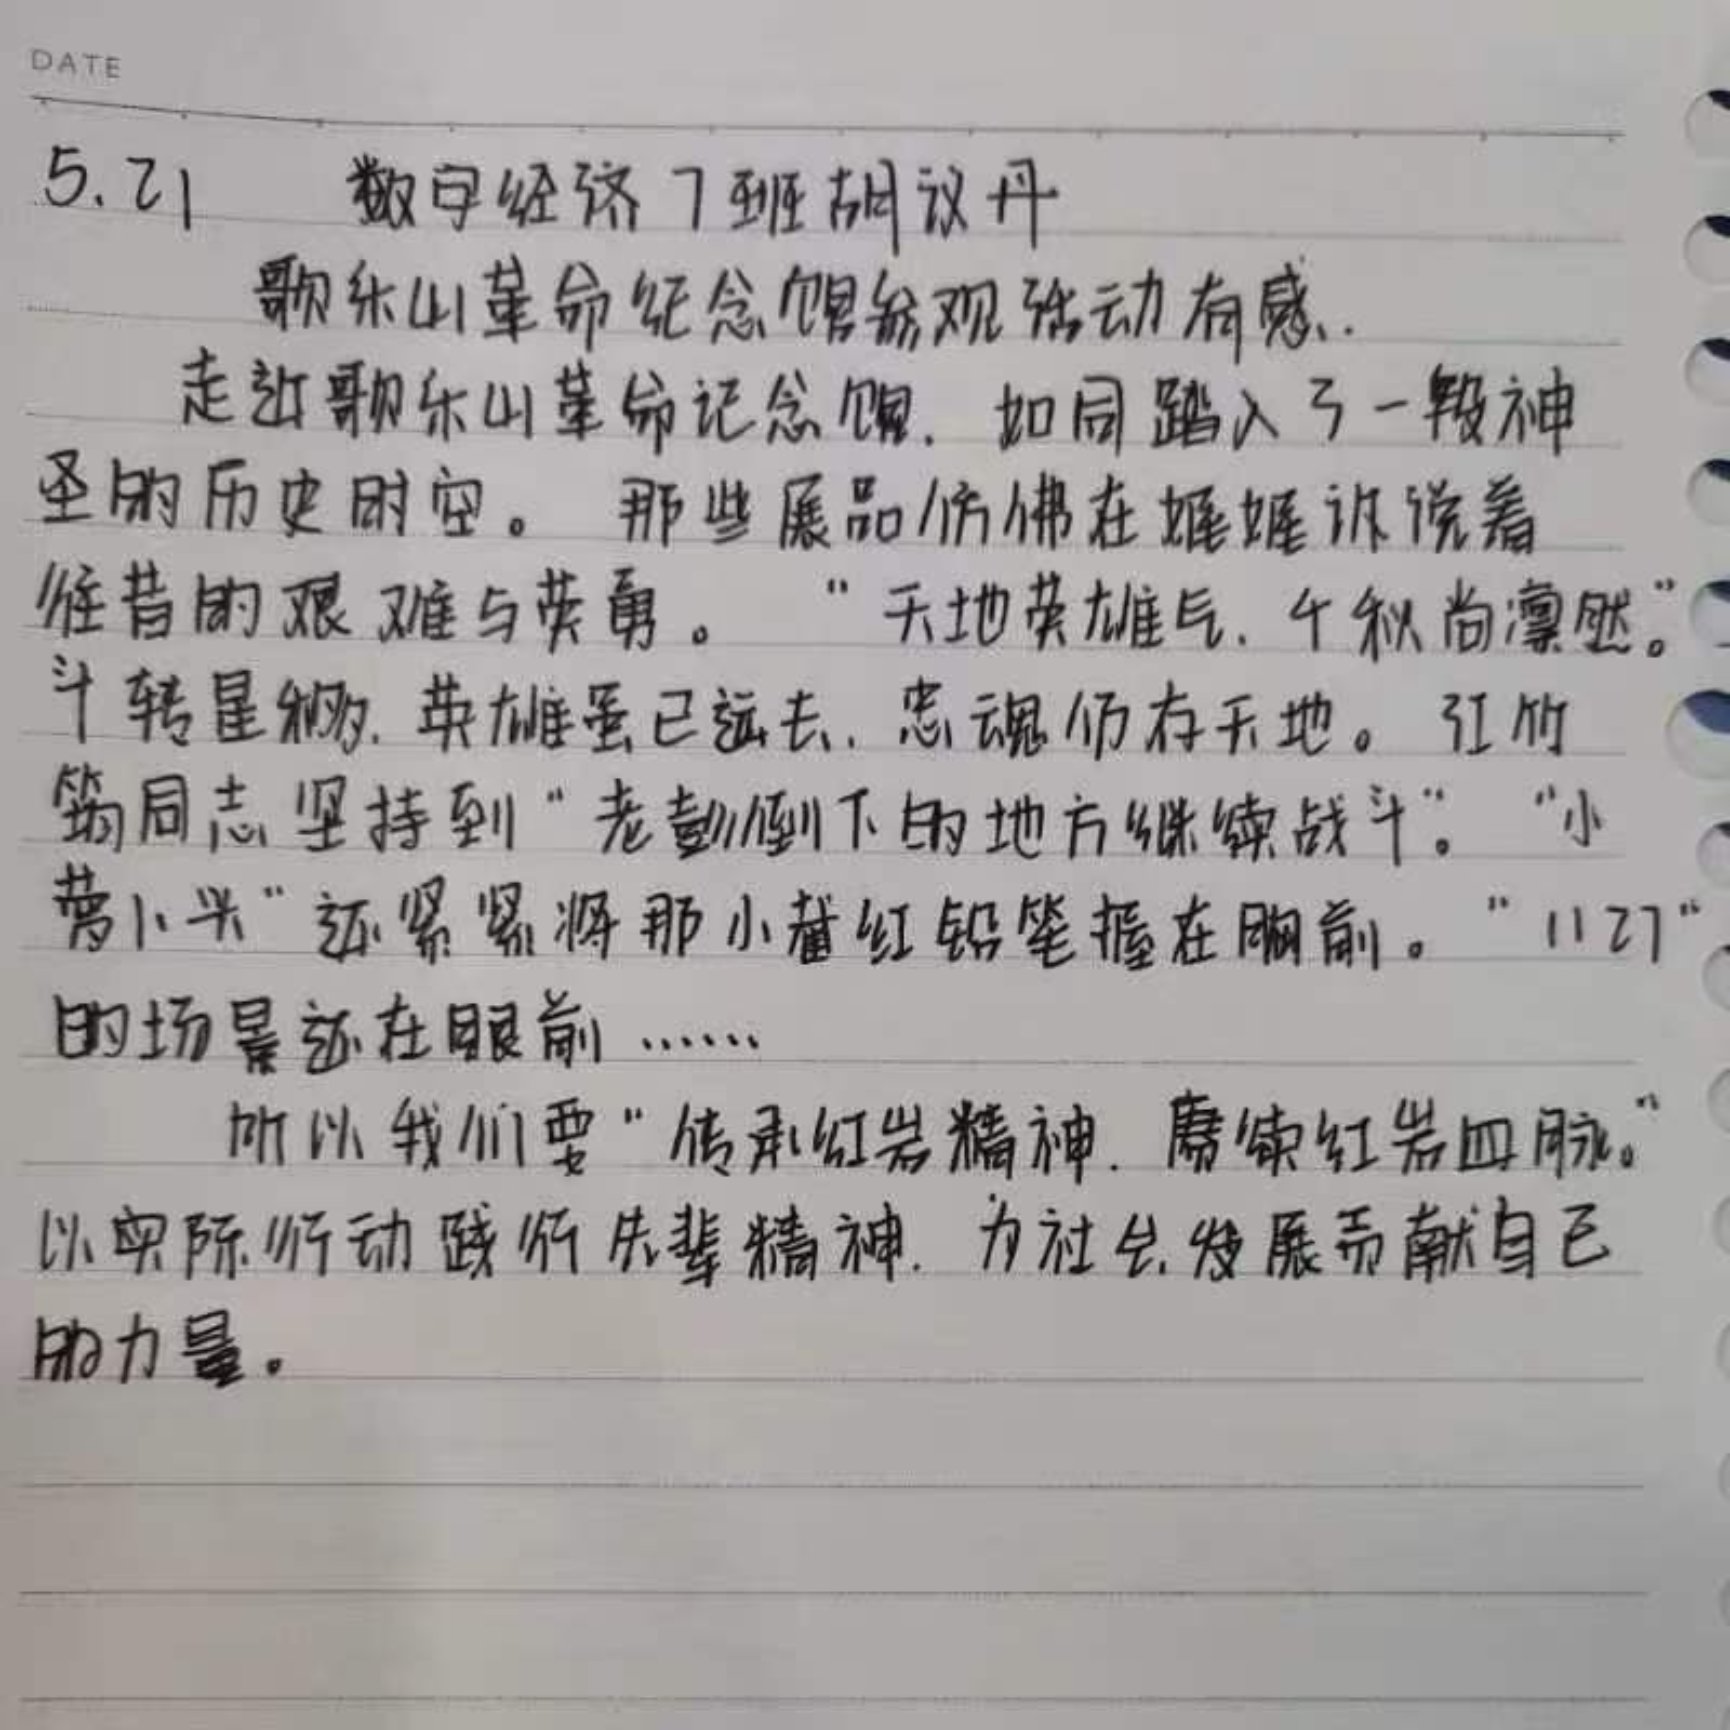 DATE
5.21 数字经济7班胡议丹
歌乐山革命纪念馆参观活动有感.
走近歌乐山革命记念馆.如同踏入了一段神
圣的历史时空。那些展品仿佛在娓娓诉说着
往昔的艰难与英勇。“天地英雄气.千秋尚凛然。”
斗转星移.英雄虽已远去.忠魂仍存天地。江竹
筠同志坚持到“老彭倒下的地方继续战斗”。“小
萝卜头”还紧紧将那小截红铅笔握在胸前。“1127”
的场景还在眼前……
所以我们要“传承红岩精神.赓续红岩血脉。”
以实际行动践行先辈精神.为社会发展贡献自己
的力量。